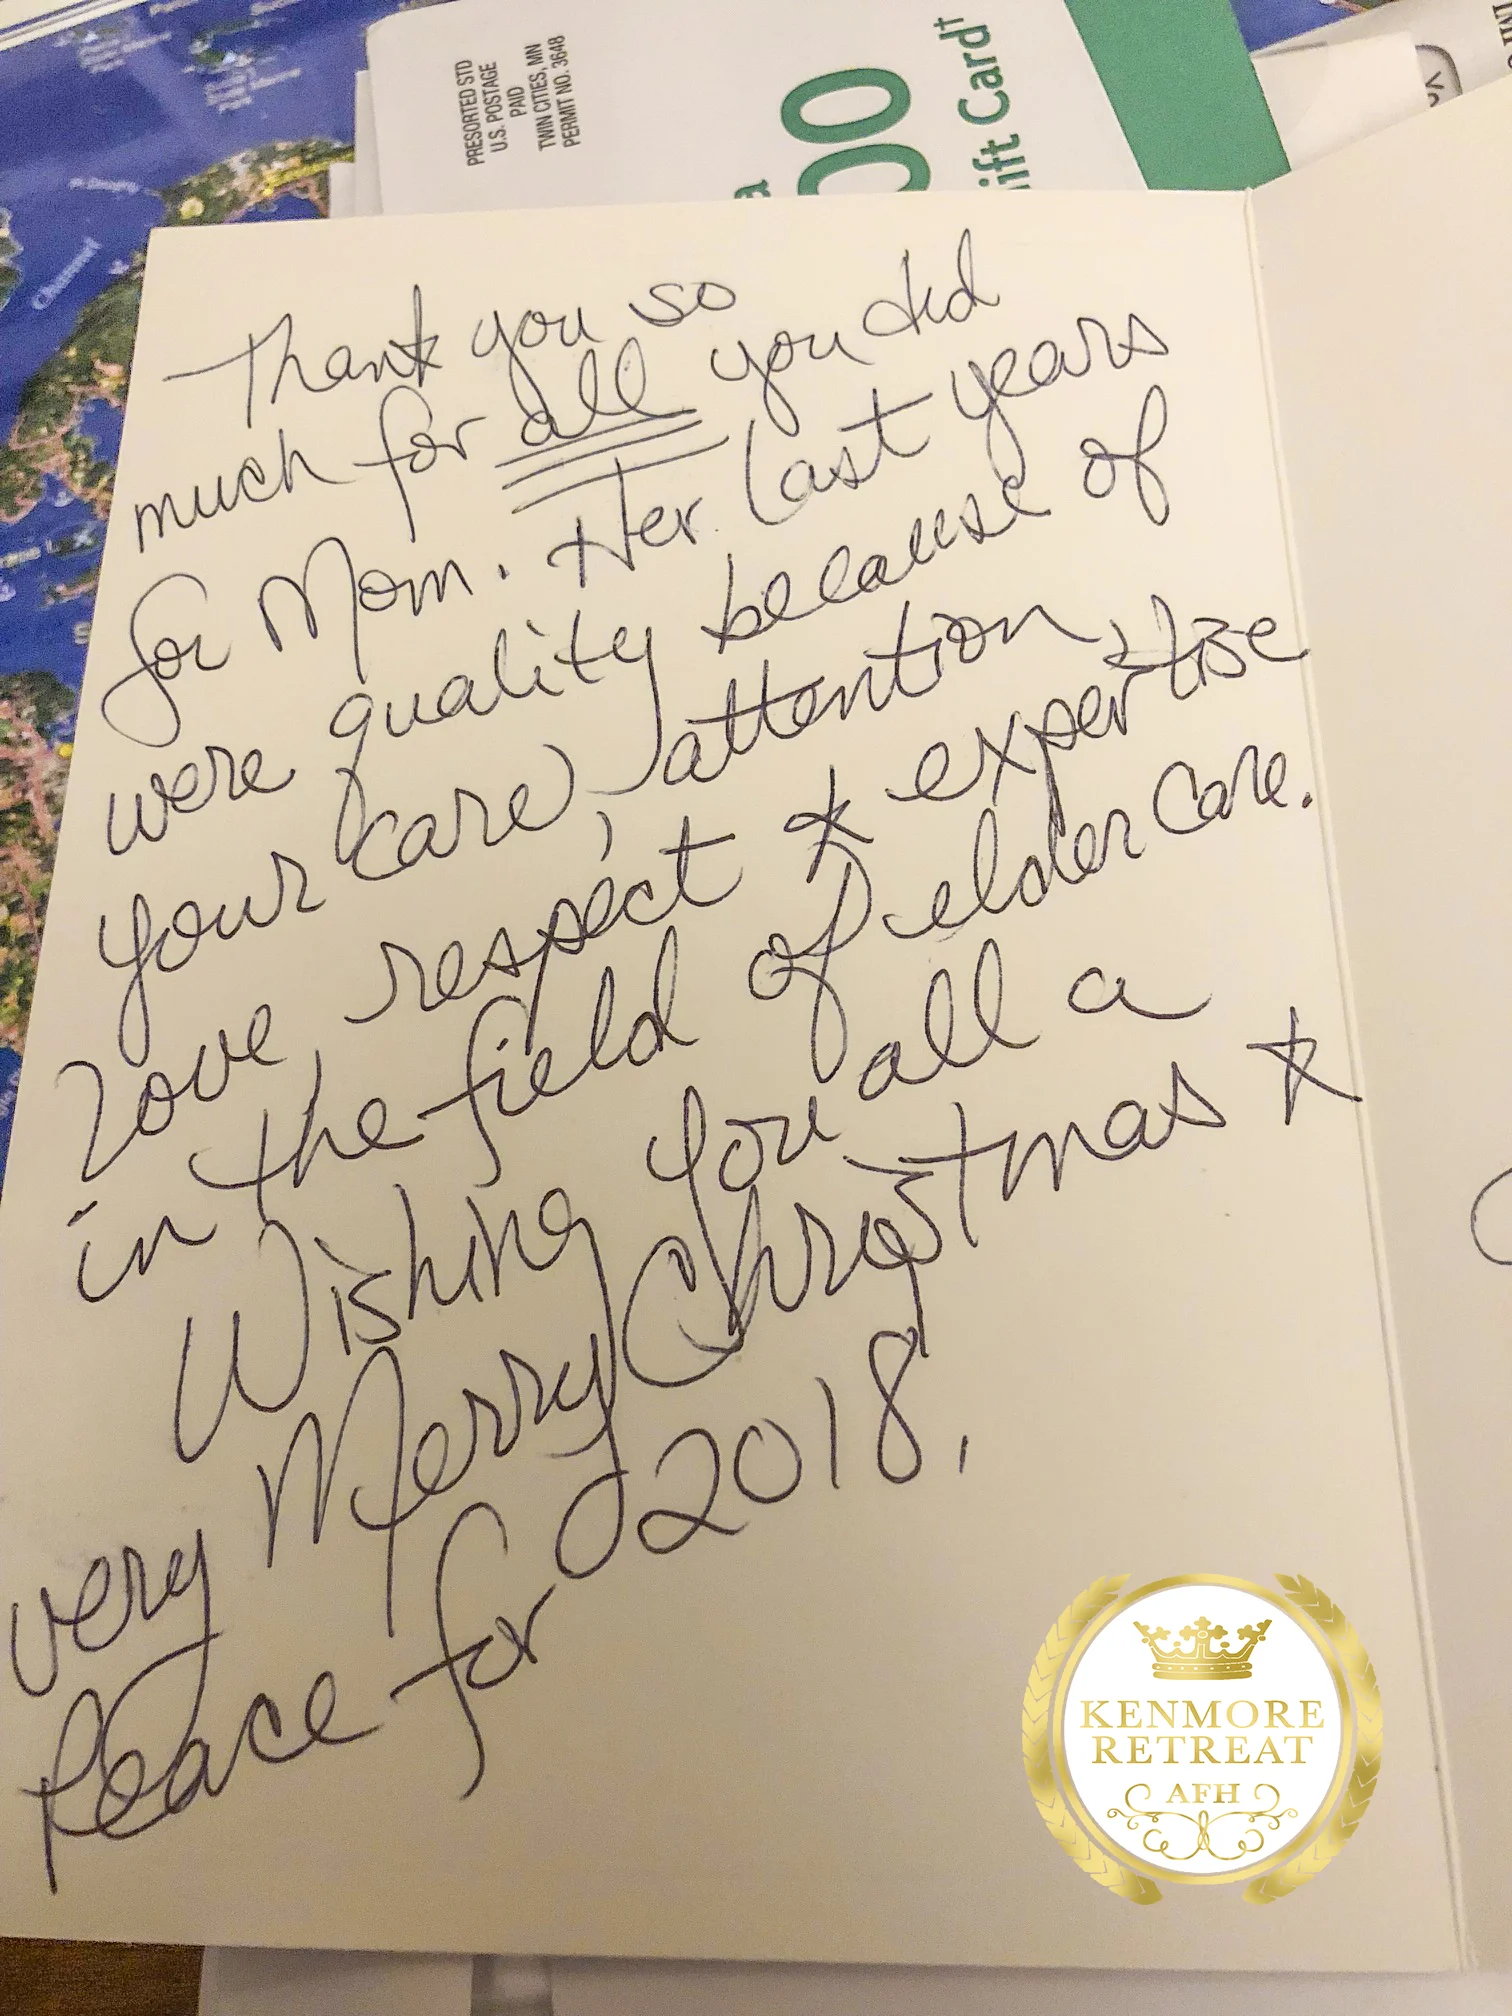 PRESORTED STD
U.S. POSTAGE
PAID
TWIN CITIES, MN
PERMIT NO. 3648
00
ift Card†
Channel
Thank you so
much for all you did
for Mom. Her last years
were quality because of
your care, attention,
love, respect & expertise
in the field of elder care.
Wishing you all a
very Merry Christmas &
Peace for 2018.
KENMORE
RETREAT
AFH